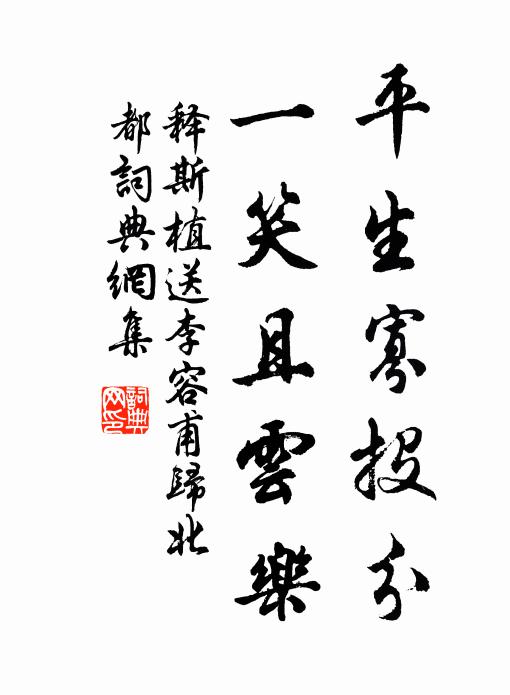 平生寡投分
一笑且雲樂
释斯植送李容甫歸北
都詞典網集
詞典
网印